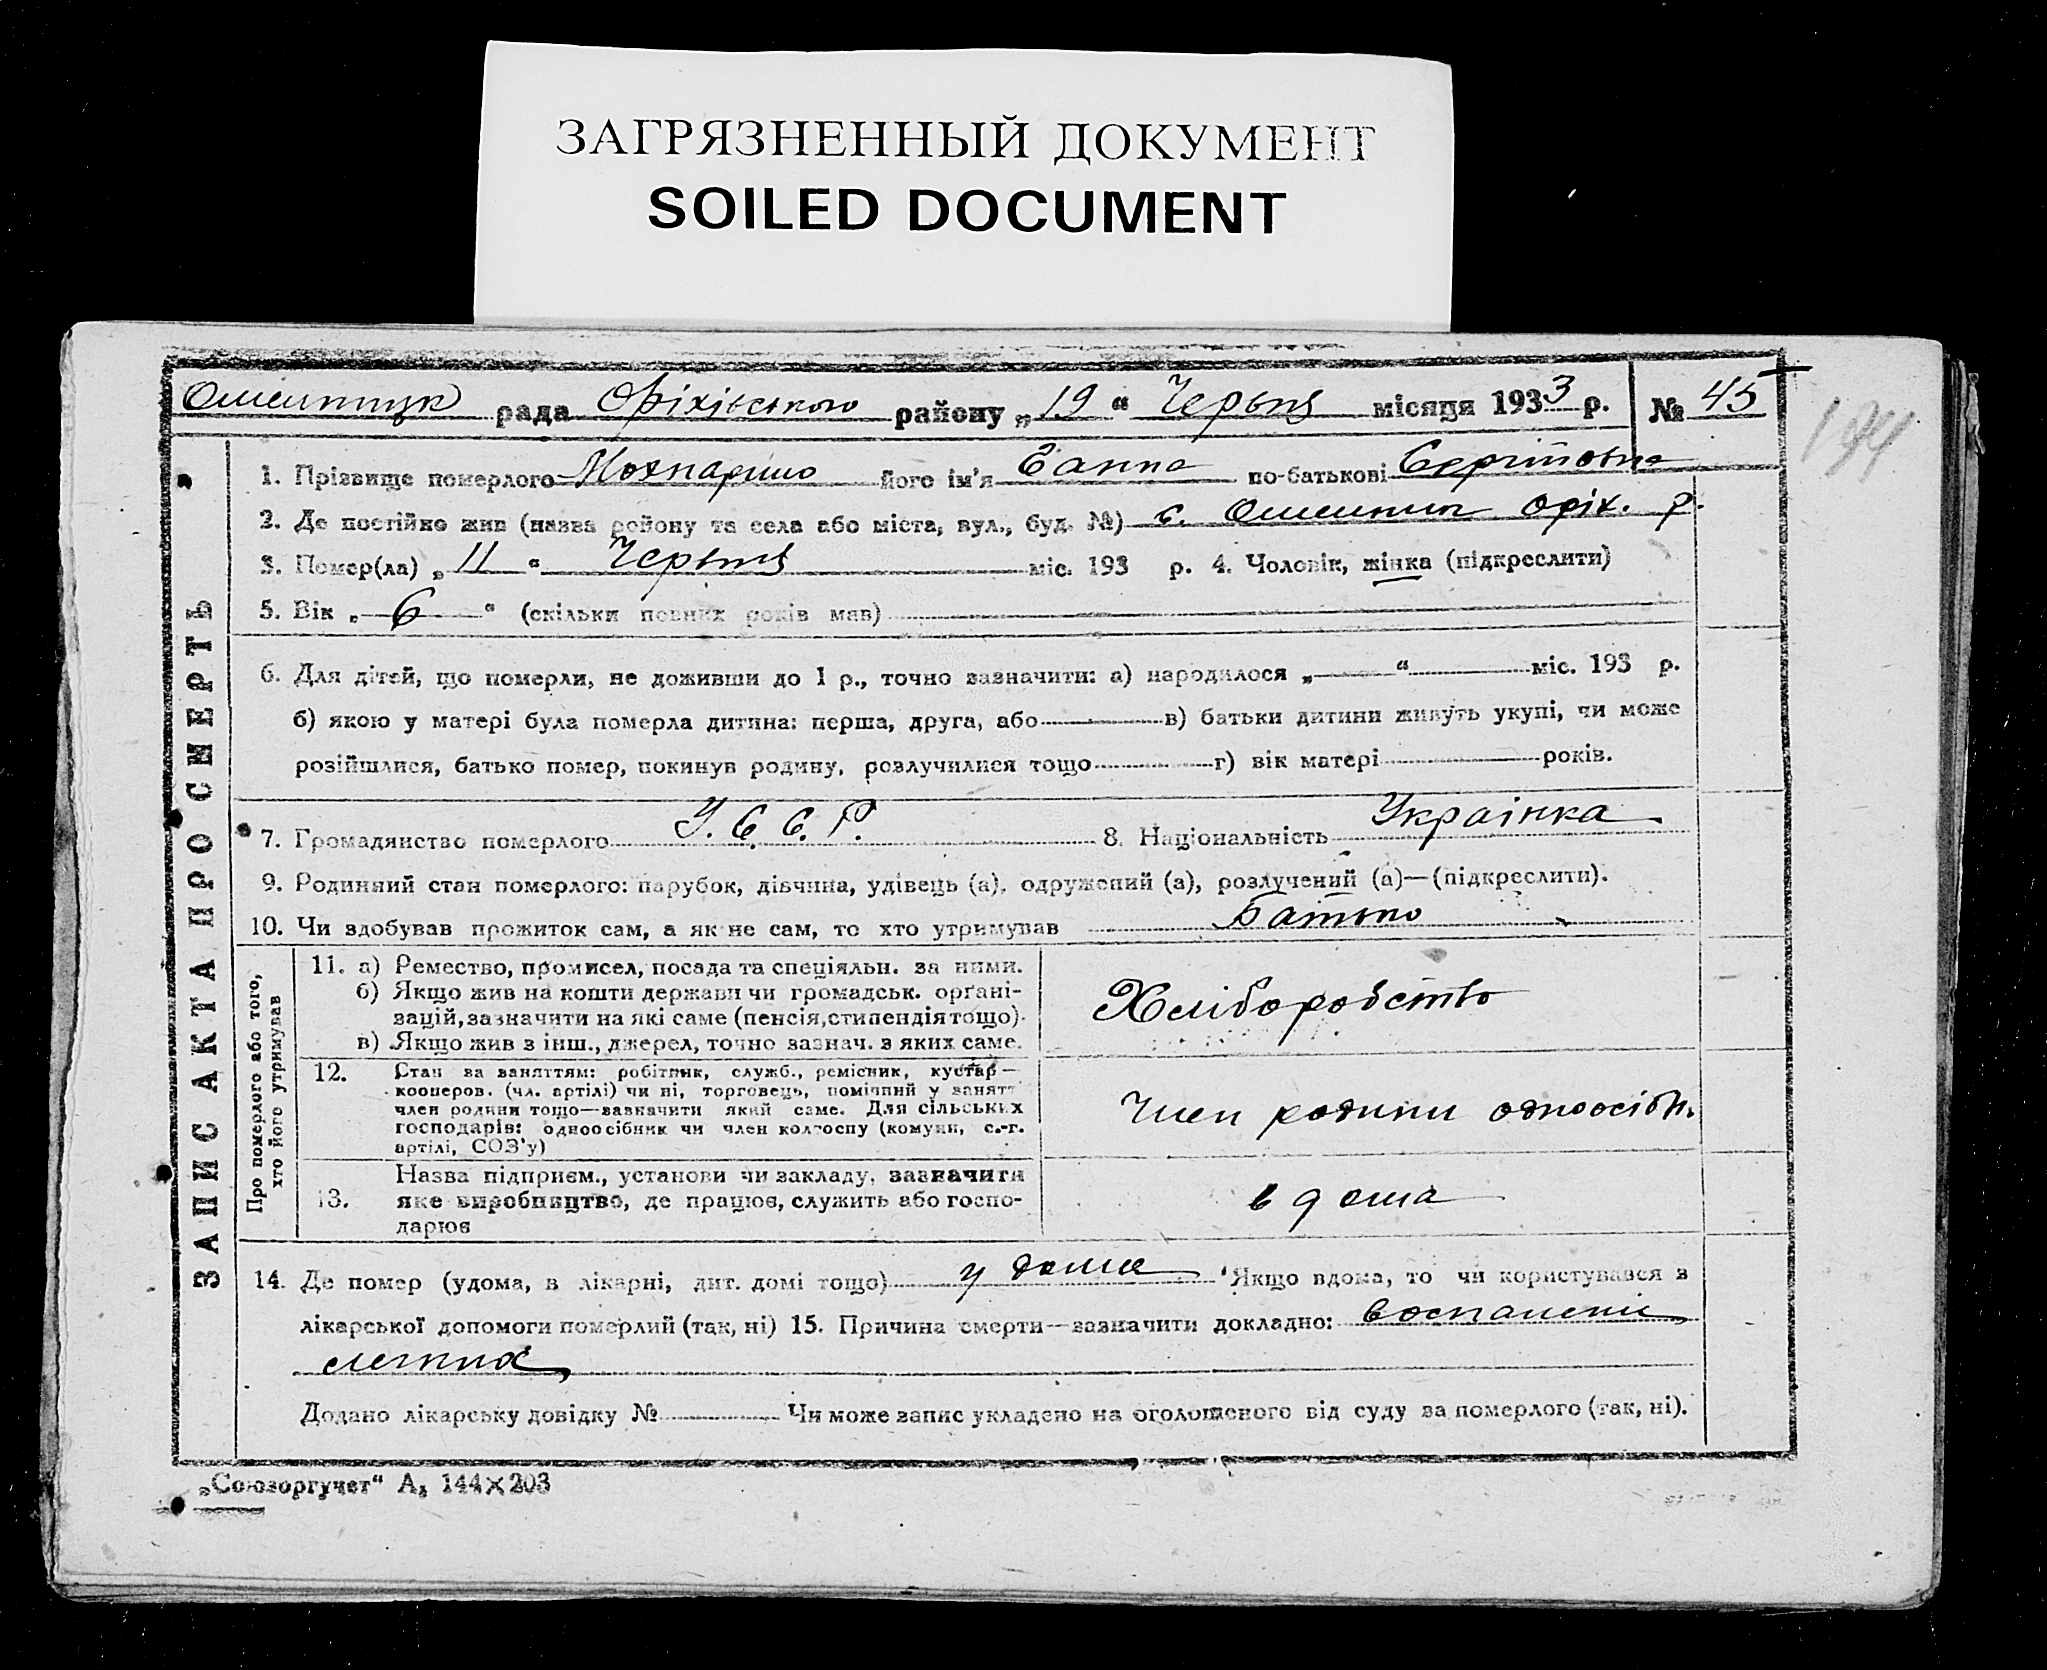 ЗАГРЯЗНЕННЫЙ ДОКУМЕНТ
SOILED DOCUMENT
рада Оріхівського району „19“ Червня місяця 1933 р. № 45
194
ЗАПИС АКТА ПРО СМЕРТЬ
1. Прізвище померлого його ім'я Ганна по-батькові
2. Де постійно жив (назва району та села або міста, вул., буд. №) с. Оріх. р.
3. Помер(ла) „11“ Червня міс. 193 р. 4. Чоловік, жінка (підкреслити)
5. Вік „6“ (скільки повних років мав)
6. Для дітей, що померли, не доживши до 1 р., точно зазначити: а) народилося „ “ міс. 193 р.
б) якою у матері була померла дитина: перша, друга, або в) батьки дитини живуть укупі, чи може
розійшлися, батько помер, покинув родину, розлучилися тощо г) вік матері років.
7. Громадянство померлого У.С.С.Р. 8. Національність Українка
9. Родинний стан померлого: парубок, дівчина, удівець (а), одружений (а), розлучений (а)—(підкреслити).
10. Чи здобував прожиток сам, а як не сам, то хто утримував Батько
Про померлого або того,
хто його утримував
11. а) Ремество, промисел, посада та спеціяльн. за ними.
б) Якщо жив на кошти держави чи громадськ. органі-
зацій, зазначити на які саме (пенсія, стипендія тощо).
в) Якщо жив з інш., джерел, точно зазнач. з яких саме.
Хліборобство
12. Стан за заняттям: робітник, служб., ремісник, кустар—
кооперов. (чл. артілі) чи ні, торговець, помічний у занятт
член родини тощо—зазначити який саме. Для сільських
господарів: одноосібник чи член колгоспу (комуни, с.-г.
артілі, СОЗ'у)
Член родини одноосібн.
13. Назва підприєм., установи чи закладу, зазначити
яке виробництво, де працює, служить або госпо-
дарює
вдома
14. Де помер (удома, в лікарні, дит. домі тощо) у дома Якщо вдома, то чи користувався з
лікарської допомоги померлий (так, ні) 15. Причина смерти—зазначити докладно: воспаленіє
легких
Додано лікарську довідку № Чи може запис укладено на оголошеного від суду за померлого (так, ні).
„Союзоргучет“ А, 144×203